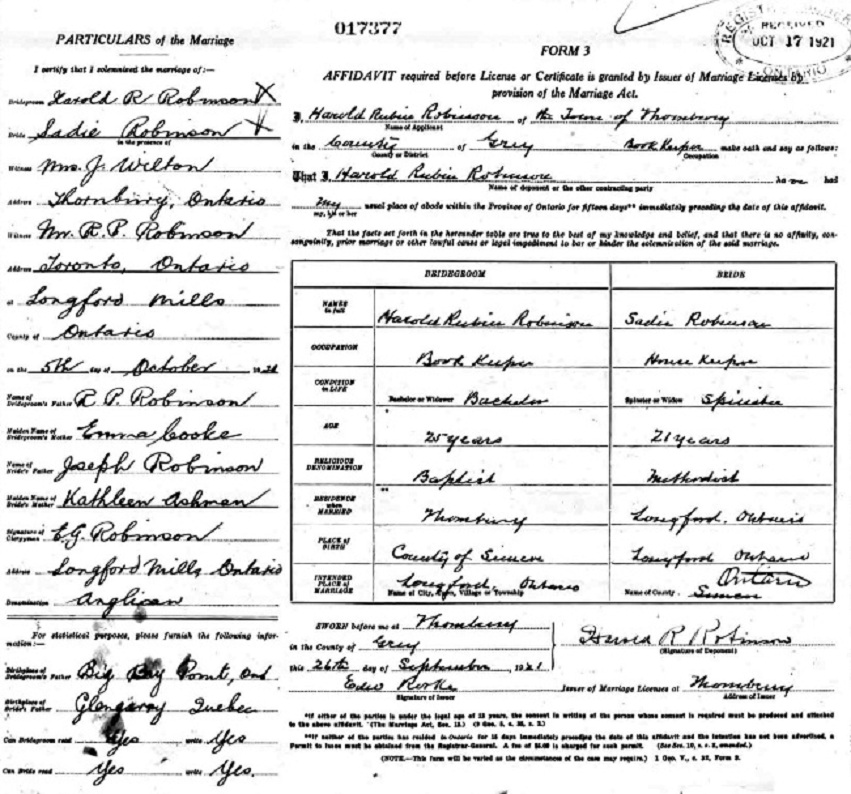 PARTICULARS of the Marriage
I certify that I solemnized the marriage of:—
Bridegroom Harold R Robinson X
Bride Sadie Robinson
in the presence of
Witness Mrs. J. Wilton
Address Thornbury, Ontario
Witness Mr. R. P. Robinson
Address Toronto, Ontario
at Longford Mills
County of Ontario
on the 5th day of October 1921
Name of Bridegroom's Father R. P. Robinson
Maiden Name of Bridegroom's Mother Emma Cooke
Name of Bride's Father Joseph Robinson
Maiden Name of Bride's Mother Kathleen Ashman
Signature of Clergyman E. G. Robinson
Address Longford Mills Ontario
Denomination Anglican
For statistical purposes, please furnish the following information:—
Birthplace of Bridegroom's Father Big Bay Point, Ont
Birthplace of Bride's Father Glengaray Quebec
Can Bridegroom read Yes write Yes
Can Bride read Yes write Yes.
017377
RECEIVED
OCT 17 1921
ONTARIO
FORM 3
AFFIDAVIT required before License or Certificate is granted by Issuer of Marriage Licenses by
provision of the Marriage Act.
I, Harold Rubin Robinson of the Town of Thornbury
Name of Applicant
in the County of Grey Book Keeper make oath and say as follows:
County or District Occupation
That I, Harold Rubin Robinson have had
Name of deponent or the other contracting party
my usual place of abode within the Province of Ontario for fifteen days** immediately preceding the date of this affidavit.
my, his or her
That the facts set forth in the hereunder table are true to the best of my knowledge and belief, and that there is no affinity, con-
sanguinity, prior marriage or other lawful cause or legal impediment to bar or hinder the solemnization of the said marriage.
BRIDEGROOM BRIDE
NAMES in full Harold Rubin Robinson Sadie Robinson
OCCUPATION Book Keeper House Keeper
CONDITION in LIFE Bachelor or Widower Bachelor Spinster or Widow Spinster
AGE 25 years 21 years
RELIGIOUS DENOMINATION Baptist Methodist
RESIDENCE when MARRIED Thornbury Longford, Ontario
PLACE of BIRTH County of Simcoe Longford Ontario
INTENDED PLACE of MARRIAGE Longford, Ontario Ontario
Name of City, Town, Village or Township Name of County Simcoe
SWORN before me at Thornbury
in the County of Grey
this 26th day of September 1921
Harold R. Robinson
(Signature of Deponent)
Signature of Issuer
Issuer of Marriage Licenses at Thornbury
Address of Issuer
*If either of the parties is under the legal age of 18 years, the consent in writing of the person whose consent is required must be produced and attached
to the above affidavit. (The Marriage Act, Sec. 15.)
**If neither of the parties has resided in Ontario for 15 days immediately preceding the date of this affidavit and the intention has not been advertised, a
Permit to issue must be obtained from the Registrar-General. A fee of is charged for such permit.
(NOTE.—This form will be varied as the circumstances of the case may require.) 1 Geo. V., c. 32, Form 3.